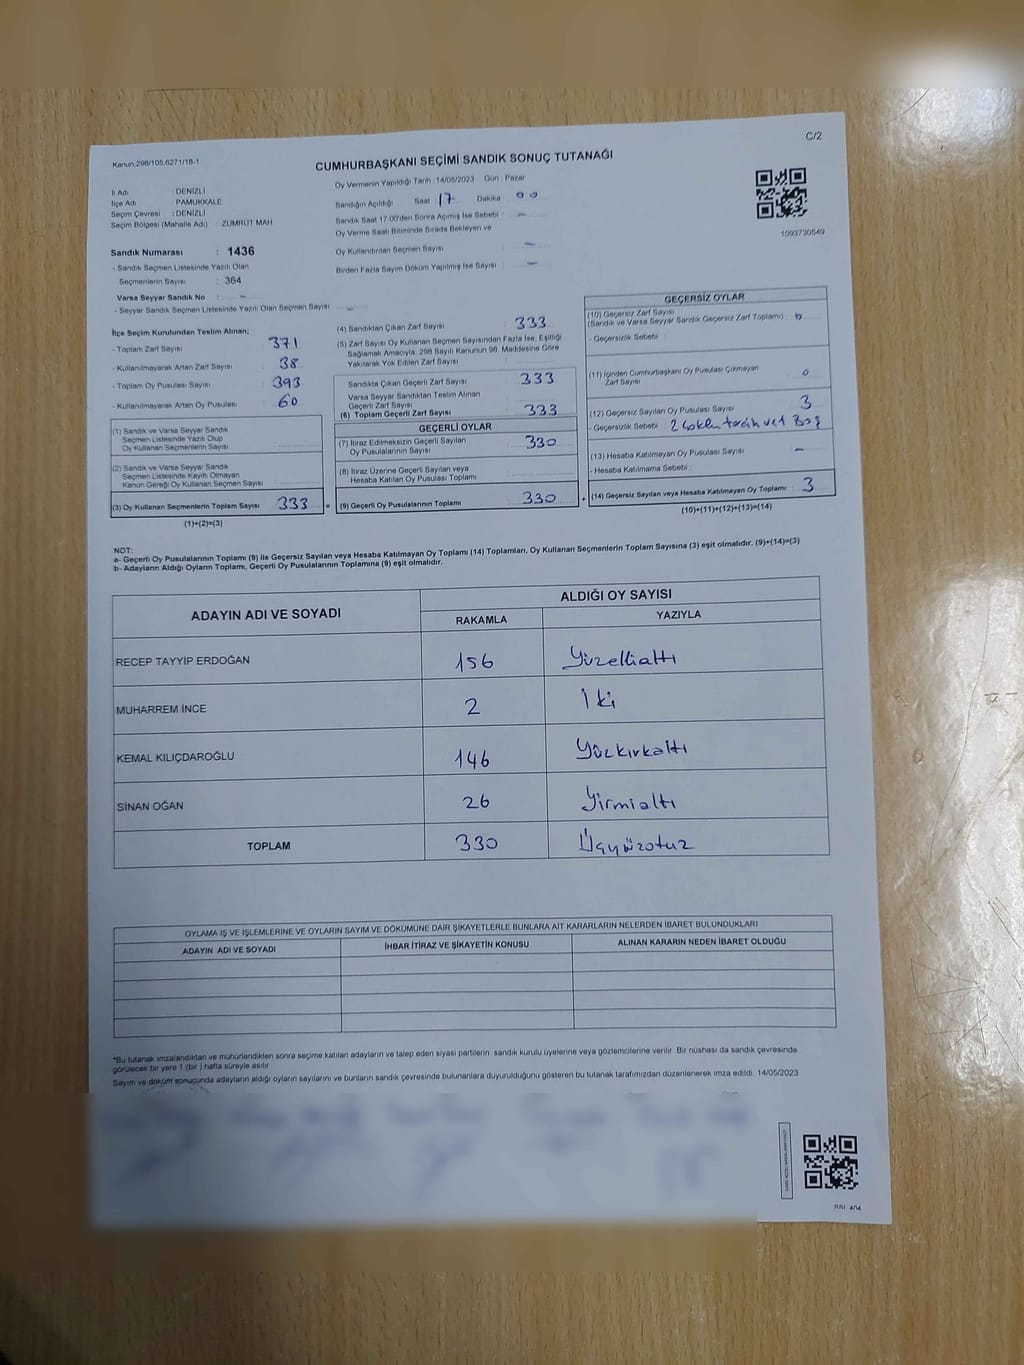 C/2
Kanun.298/105,6271/18-1
CUMHURBAŞKANI SEÇİMİ SANDIK SONUÇ TUTANAĞI
İl Adı : DENİZLİ
İlçe Adı : PAMUKKALE
Seçim Çevresi : DENİZLİ
Seçim Bölgesi (Mahalle Adı) : ZÜMRÜT MAH
Sandık Numarası : 1436
- Sandık Seçmen Listesinde Yazılı Olan
Seçmenlerin Sayısı : 364
Varsa Seyyar Sandık No : -
- Seyyar Sandık Seçmen Listesinde Yazılı Olan Seçmen Sayısı : -
Oy Vermenin Yapıldığı Tarih : 14/05/2023 Gün : Pazar
Sandığın Açıldığı Saat 17 Dakika : 00
Sandık Saat 17:00'den Sonra Açılmış İse Sebebi : -
Oy Verme Saati Bitiminde Sırada Bekleyen ve
Oy Kullandırılan Seçmen Sayısı : -
Birden Fazla Sayım Döküm Yapılmış İse Sayısı : -
1093730549
İlçe Seçim Kurulundan Teslim Alınan;
- Toplam Zarf Sayısı : 371
- Kullanılmayarak Artan Zarf Sayısı : 38
- Toplam Oy Pusulası Sayısı : 393
- Kullanılmayarak Artan Oy Pusulası : 60
(1) Sandık ve Varsa Seyyar Sandık
Seçmen Listesinde Yazılı Olup
Oy Kullanan Seçmenlerin Sayısı
(2) Sandık ve Varsa Seyyar Sandık
Seçmen Listesinde Kayıtlı Olmayan
Kanun Gereği Oy Kullanan Seçmen Sayısı
(3) Oy Kullanan Seçmenlerin Toplam Sayısı : 333 =
(1)+(2)=(3)
(4) Sandıktan Çıkan Zarf Sayısı : 333
(5) Zarf Sayısı Oy Kullanan Seçmen Sayısından Fazla İse, Eşitliği
Sağlamak Amacıyla, 298 Sayılı Kanunun 98. Maddesine Göre
Yakılarak Yok Edilen Zarf Sayısı
Sandıkta Çıkan Geçerli Zarf Sayısı : 333
Varsa Seyyar Sandıktan Teslim Alınan
Geçerli Zarf Sayısı
(6) Toplam Geçerli Zarf Sayısı : 333
GEÇERLİ OYLAR
(7) İtiraz Edilmeksizin Geçerli Sayılan
Oy Pusulasının Sayısı : 330
(8) İtiraz Üzerine Geçerli Sayılan veya
Hesaba Katılan Oy Pusulası Toplamı
(9) Geçerli Oy Pusulalarının Toplamı : 330 +
GEÇERSİZ OYLAR
(10) Geçersiz Zarf Sayısı
(Sandık ve Varsa Seyyar Sandık Geçersiz Zarf Toplamı) : 0
- Geçersizlik Sebebi :
(11) İçinden Cumhurbaşkanı Oy Pusulası Çıkmayan
Zarf Sayısı : 0
(12) Geçersiz Sayılan Oy Pusulası Sayısı : 3
- Geçersizlik Sebebi : 2 çoklu tercih ve 1 Boş
(13) Hesaba Katılmayan Oy Pusulası Sayısı : -
- Hesaba Katılmama Sebebi :
(14) Geçersiz Sayılan veya Hesaba Katılmayan Oy Toplamı : 3
(10)+(11)+(12)+(13)=(14)
NOT:
a- Geçerli Oy Pusulalarının Toplamı (9) ile Geçersiz Sayılan veya Hesaba Katılmayan Oy Toplamı (14) Toplamları, Oy Kullanan Seçmenlerin Toplam Sayısına (3) eşit olmalıdır. (9)+(14)=(3)
b- Adayların Aldığı Oyların Toplamı, Geçerli Oy Pusulalarının Toplamına (9) eşit olmalıdır.
ADAYIN ADI VE SOYADI
ALDIĞI OY SAYISI
RAKAMLA YAZIYLA
RECEP TAYYİP ERDOĞAN 156 Yüzellialtı
MUHARREM İNCE 2 İki
KEMAL KILIÇDAROĞLU 146 Yüzkırkaltı
SİNAN OĞAN 26 Yirmialtı
TOPLAM 330 Üçyüzotuz
OYLAMA İŞ VE İŞLEMLERİNE VE OYLARIN SAYIM VE DÖKÜMÜNE DAİR ŞİKAYETLERLE BUNLARA AİT KARARLARIN NELERDEN İBARET BULUNDUKLARI
ADAYIN ADI VE SOYADI İHBAR İTİRAZ VE ŞİKAYETİN KONUSU ALINAN KARARIN NEDEN İBARET OLDUĞU
*Bu tutanak imzalandıktan ve mühürlendikten sonra seçime katılan adayların ve talep eden siyasi partilerin sandık kurulu üyelerine veya gözlemcilerine verilir. Bir nüshası da sandık çevresinde
görülecek bir yere 1 (bir) hafta süreyle asılır.
Sayım ve döküm sonucunda adayların aldığı oyların sayılarını ve bunların sandık çevresinde bulunanlara duyurulduğunu gösteren bu tutanak tarafımızdan düzenlenerek imza edildi. 14/05/2023